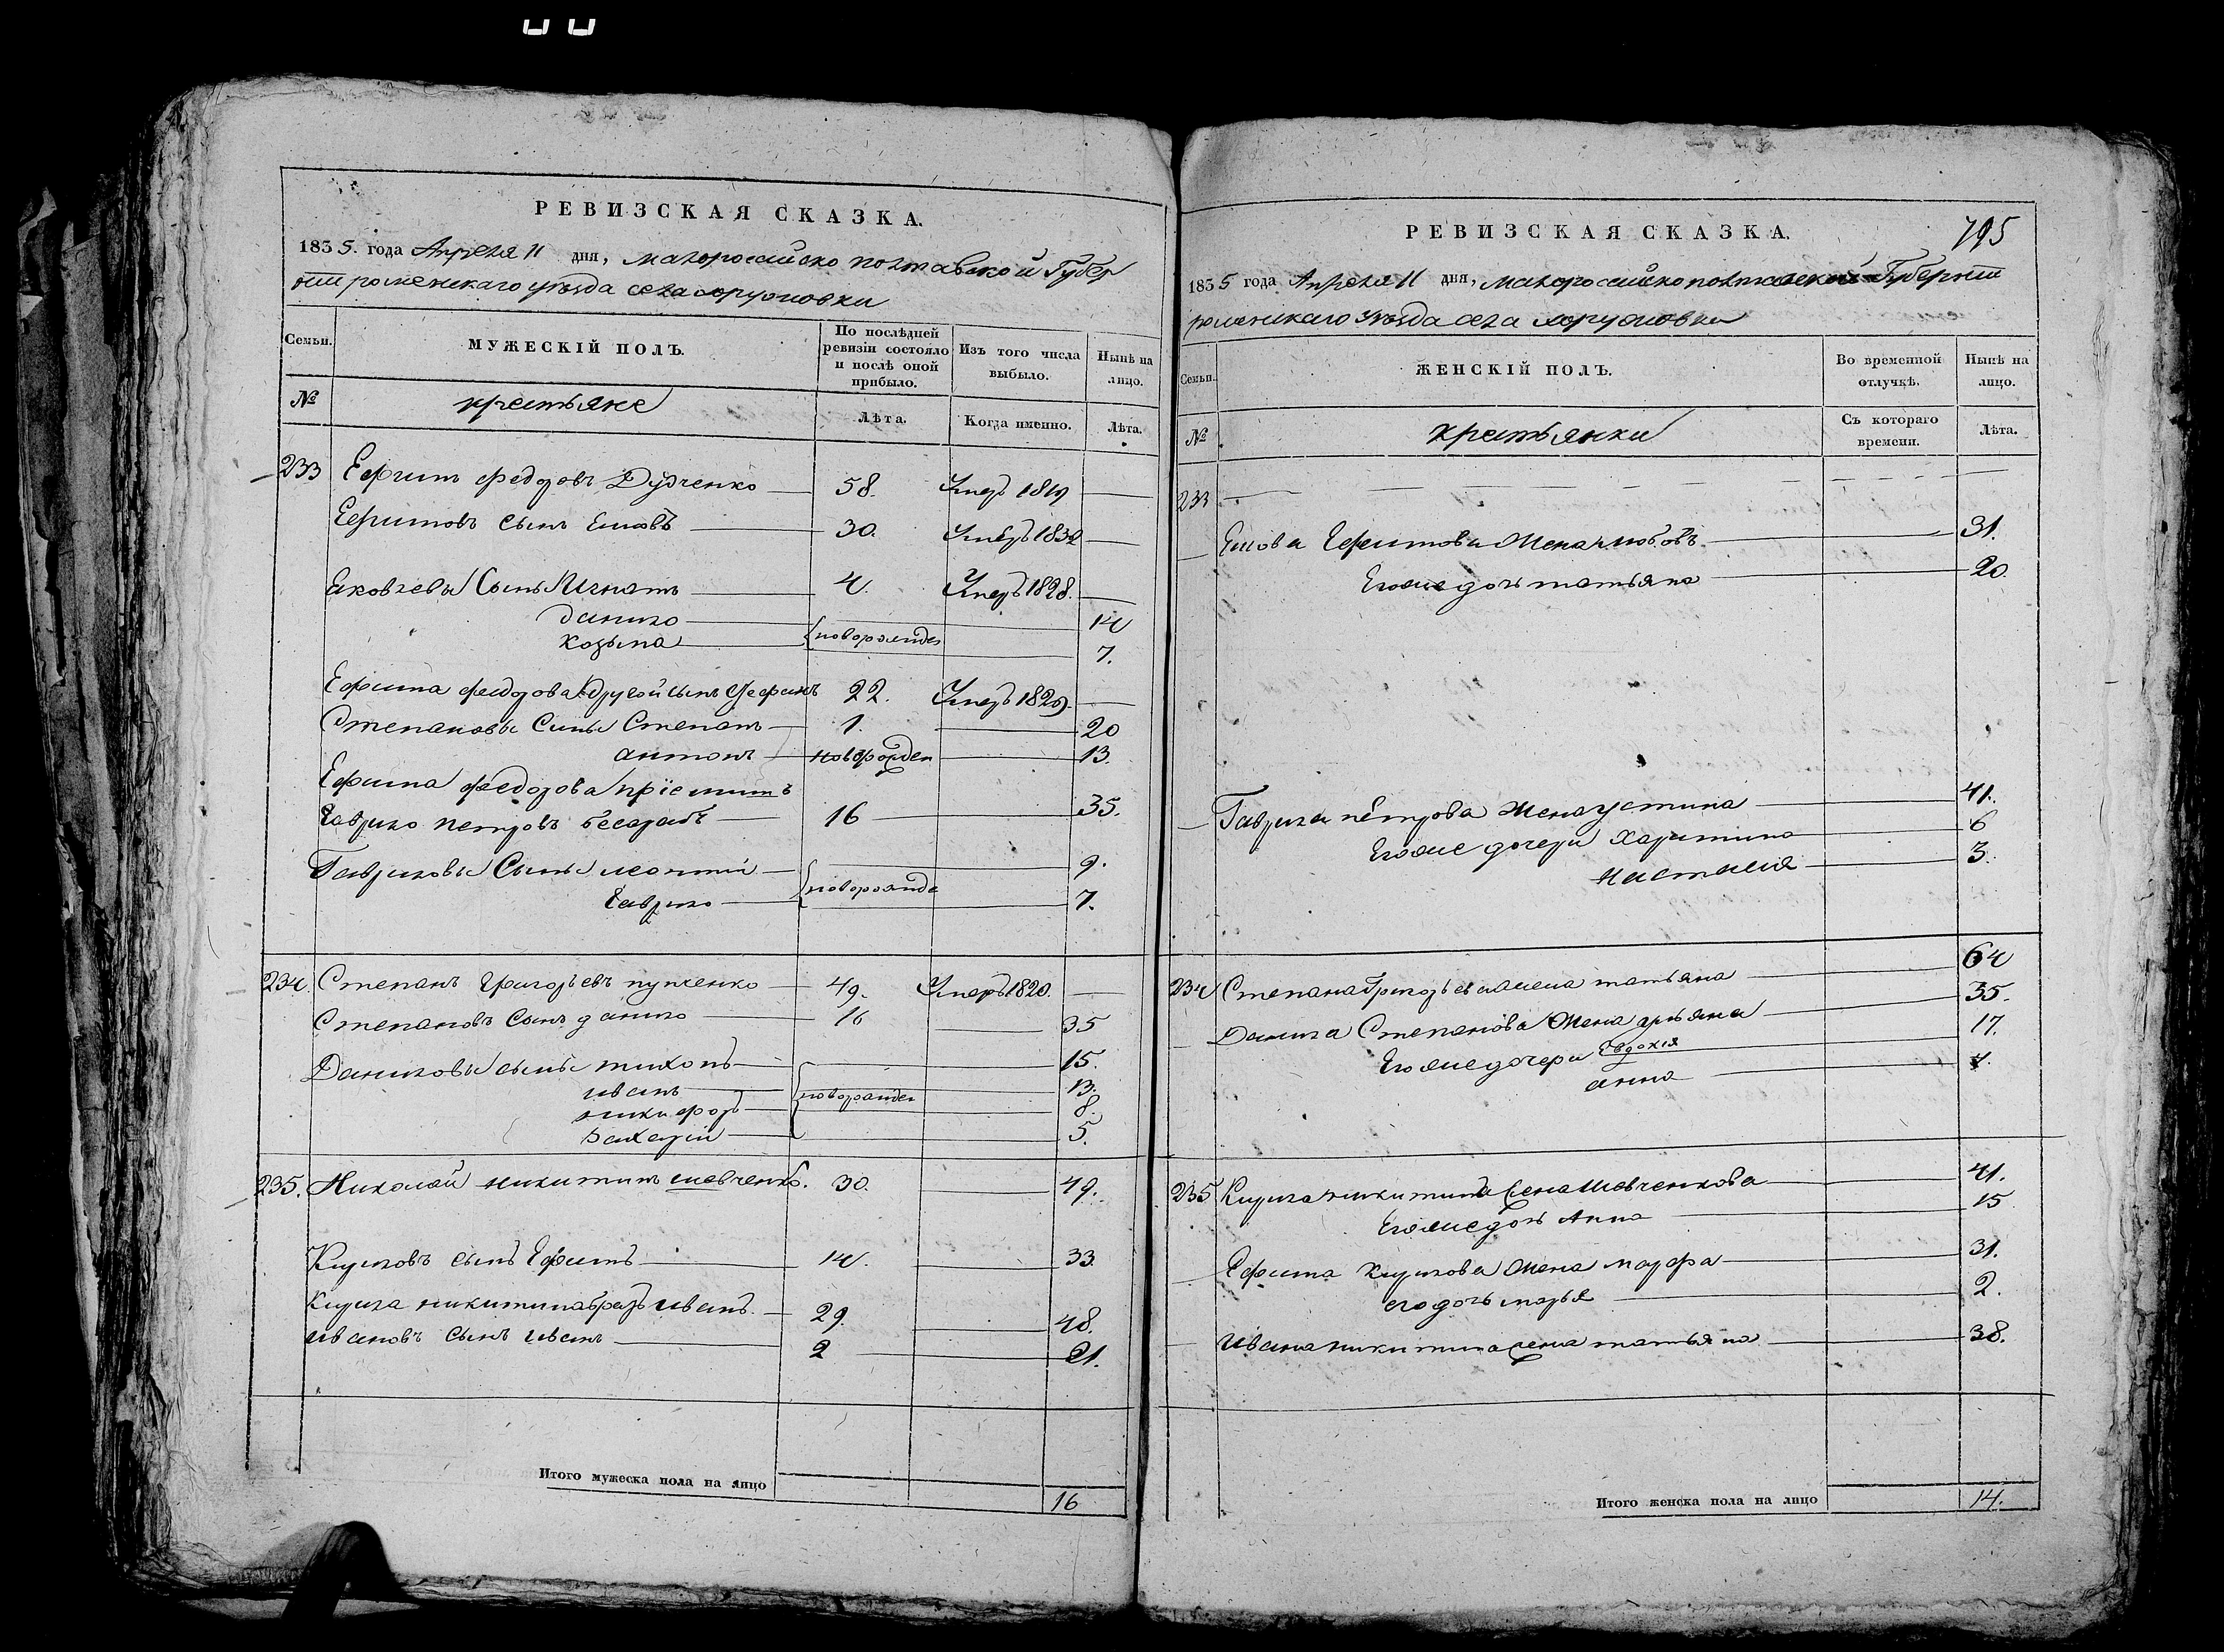 РЕВИЗСКАЯ СКАЗКА.
1835. года Апреля 11 дня, малоросийско полтавской Губер
нии роменскаго уезда села хоружовки
Семьи.
МУЖЕСКІЙ ПОЛЪ.
По послѣдней ревизіи состояло и послѣ оной прибыло.
Изъ того числа выбыло.
Нынѣ на лицо.
№
крестьяне
Лѣта.
Когда именно.
Лѣта.
233 Ефимъ федоровъ Дудченко 58. Умеръ 1819
Ефимовъ сынъ Яковъ 30. Умеръ 1832
Яковлевы Сыны Игнатъ 4. Умеръ 1828.
данило 14
козьма новорожден 7.
Ефима федорова другой сынъ Стефанъ 22. Умеръ 1829.
Степановы Сыны Степанъ 1. 20
антонъ новорожден 13.
Ефима федорова пріемишъ
Гаврило петровъ бесарабъ 16 35.
Гавриловы Сыны леонтій 9.
новорожде
Гаврило 7.
234. Степанъ Григорьевъ пупченко 49. Умеръ 1820.
Степановъ сынъ данило 16 35
Даниловы сыны тихонъ 15.
иванъ новорожден 13.
никифоръ 8.
5.
235. никитинъ шевченко. 30. 49.
Кириловъ сынъ Ефимъ 14. 33.
Кирила никитина братъ иванъ. 29. 48.
ивановъ сынъ иванъ 2 21.
Итого мужеска пола на лицо 16
РЕВИЗСКАЯ СКАЗКА. 795
1835 года Апреля 11 дня, малоросийско полтавской Губернии
роменскаго уезда села хоружовки
Семьи.
ЖЕНСКІЙ ПОЛЪ.
Во временной отлучкѣ.
Нынѣ на лицо.
№
крестьянки
Съ котораго времени.
Лѣта.
233
Якова Ефимова Жена любовъ 31.
Егоже дочь татьяна 20.
Гаврила петрова Жена устина 41.
Егоже дочери харитина 6
настасия 3.
234 Степана Григорьева жена татьяна 64
Данила Степанова Жена 35.
Егоже дочери Евдокія 17.
анна
235 Кирила никитина жена Шевченкова 41.
Егоже дочь Анна 15
Ефима Кирилова Жена марфа 31.
его дочь марья 2.
ивана никитина жена татьяна 38.
Итого женска пола на лицо 14.